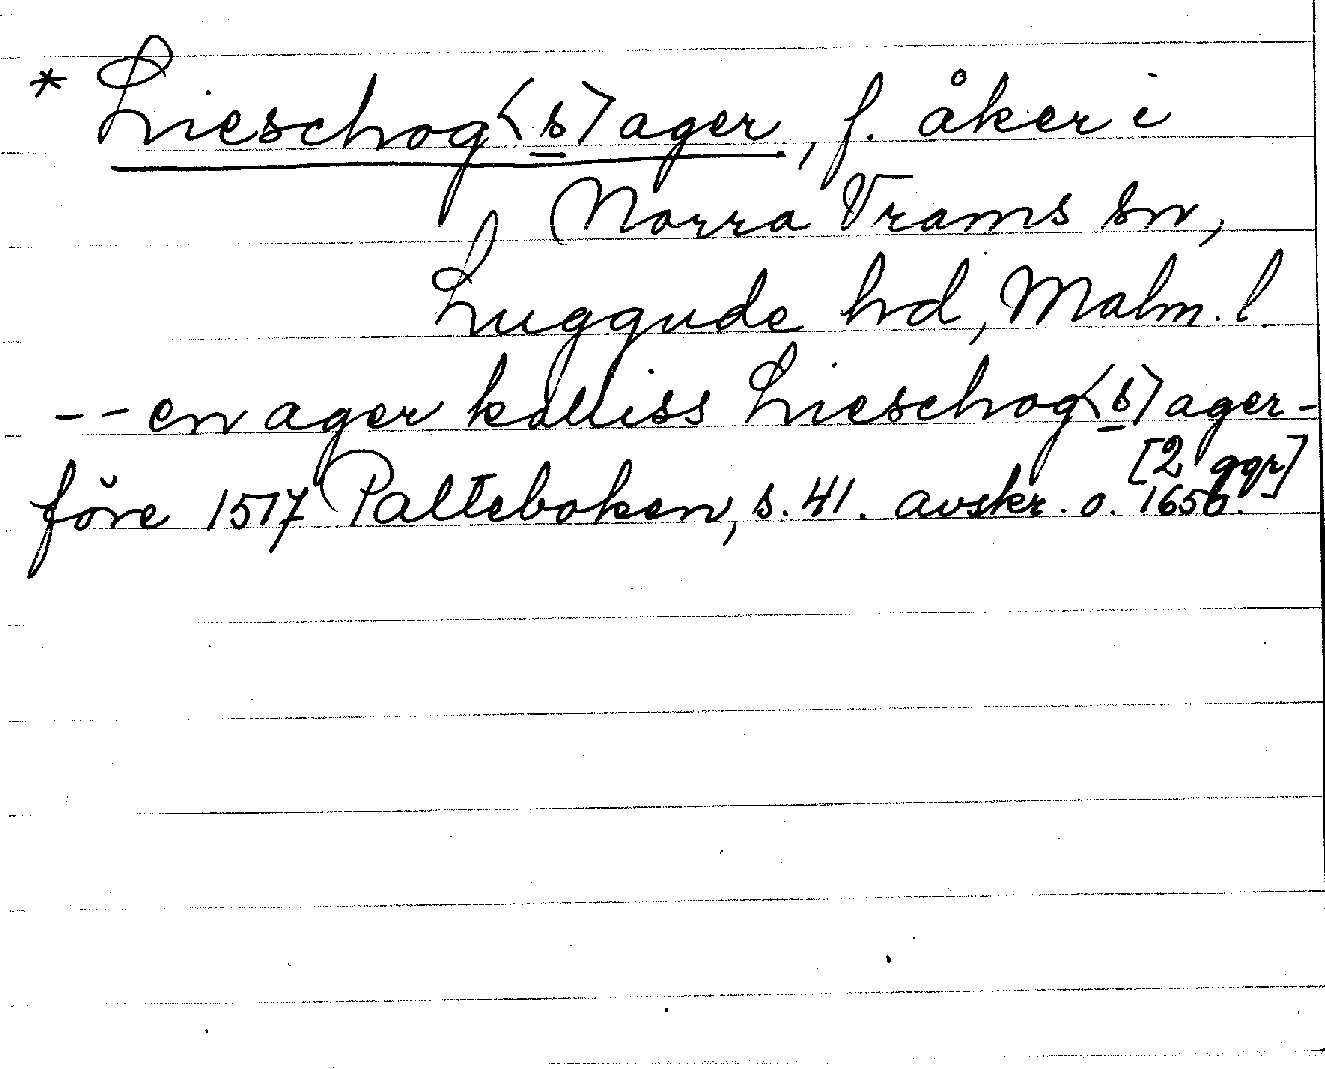 * Lieschog<s>ager, f. åker i
Norra Vrams sn,
Luggude hd, Malm. l.
-- en ager kalliss Lieschog<s>ager -
[2 ggr]
före 1517 Palteboken, s. 41. avskr. o. 1650.